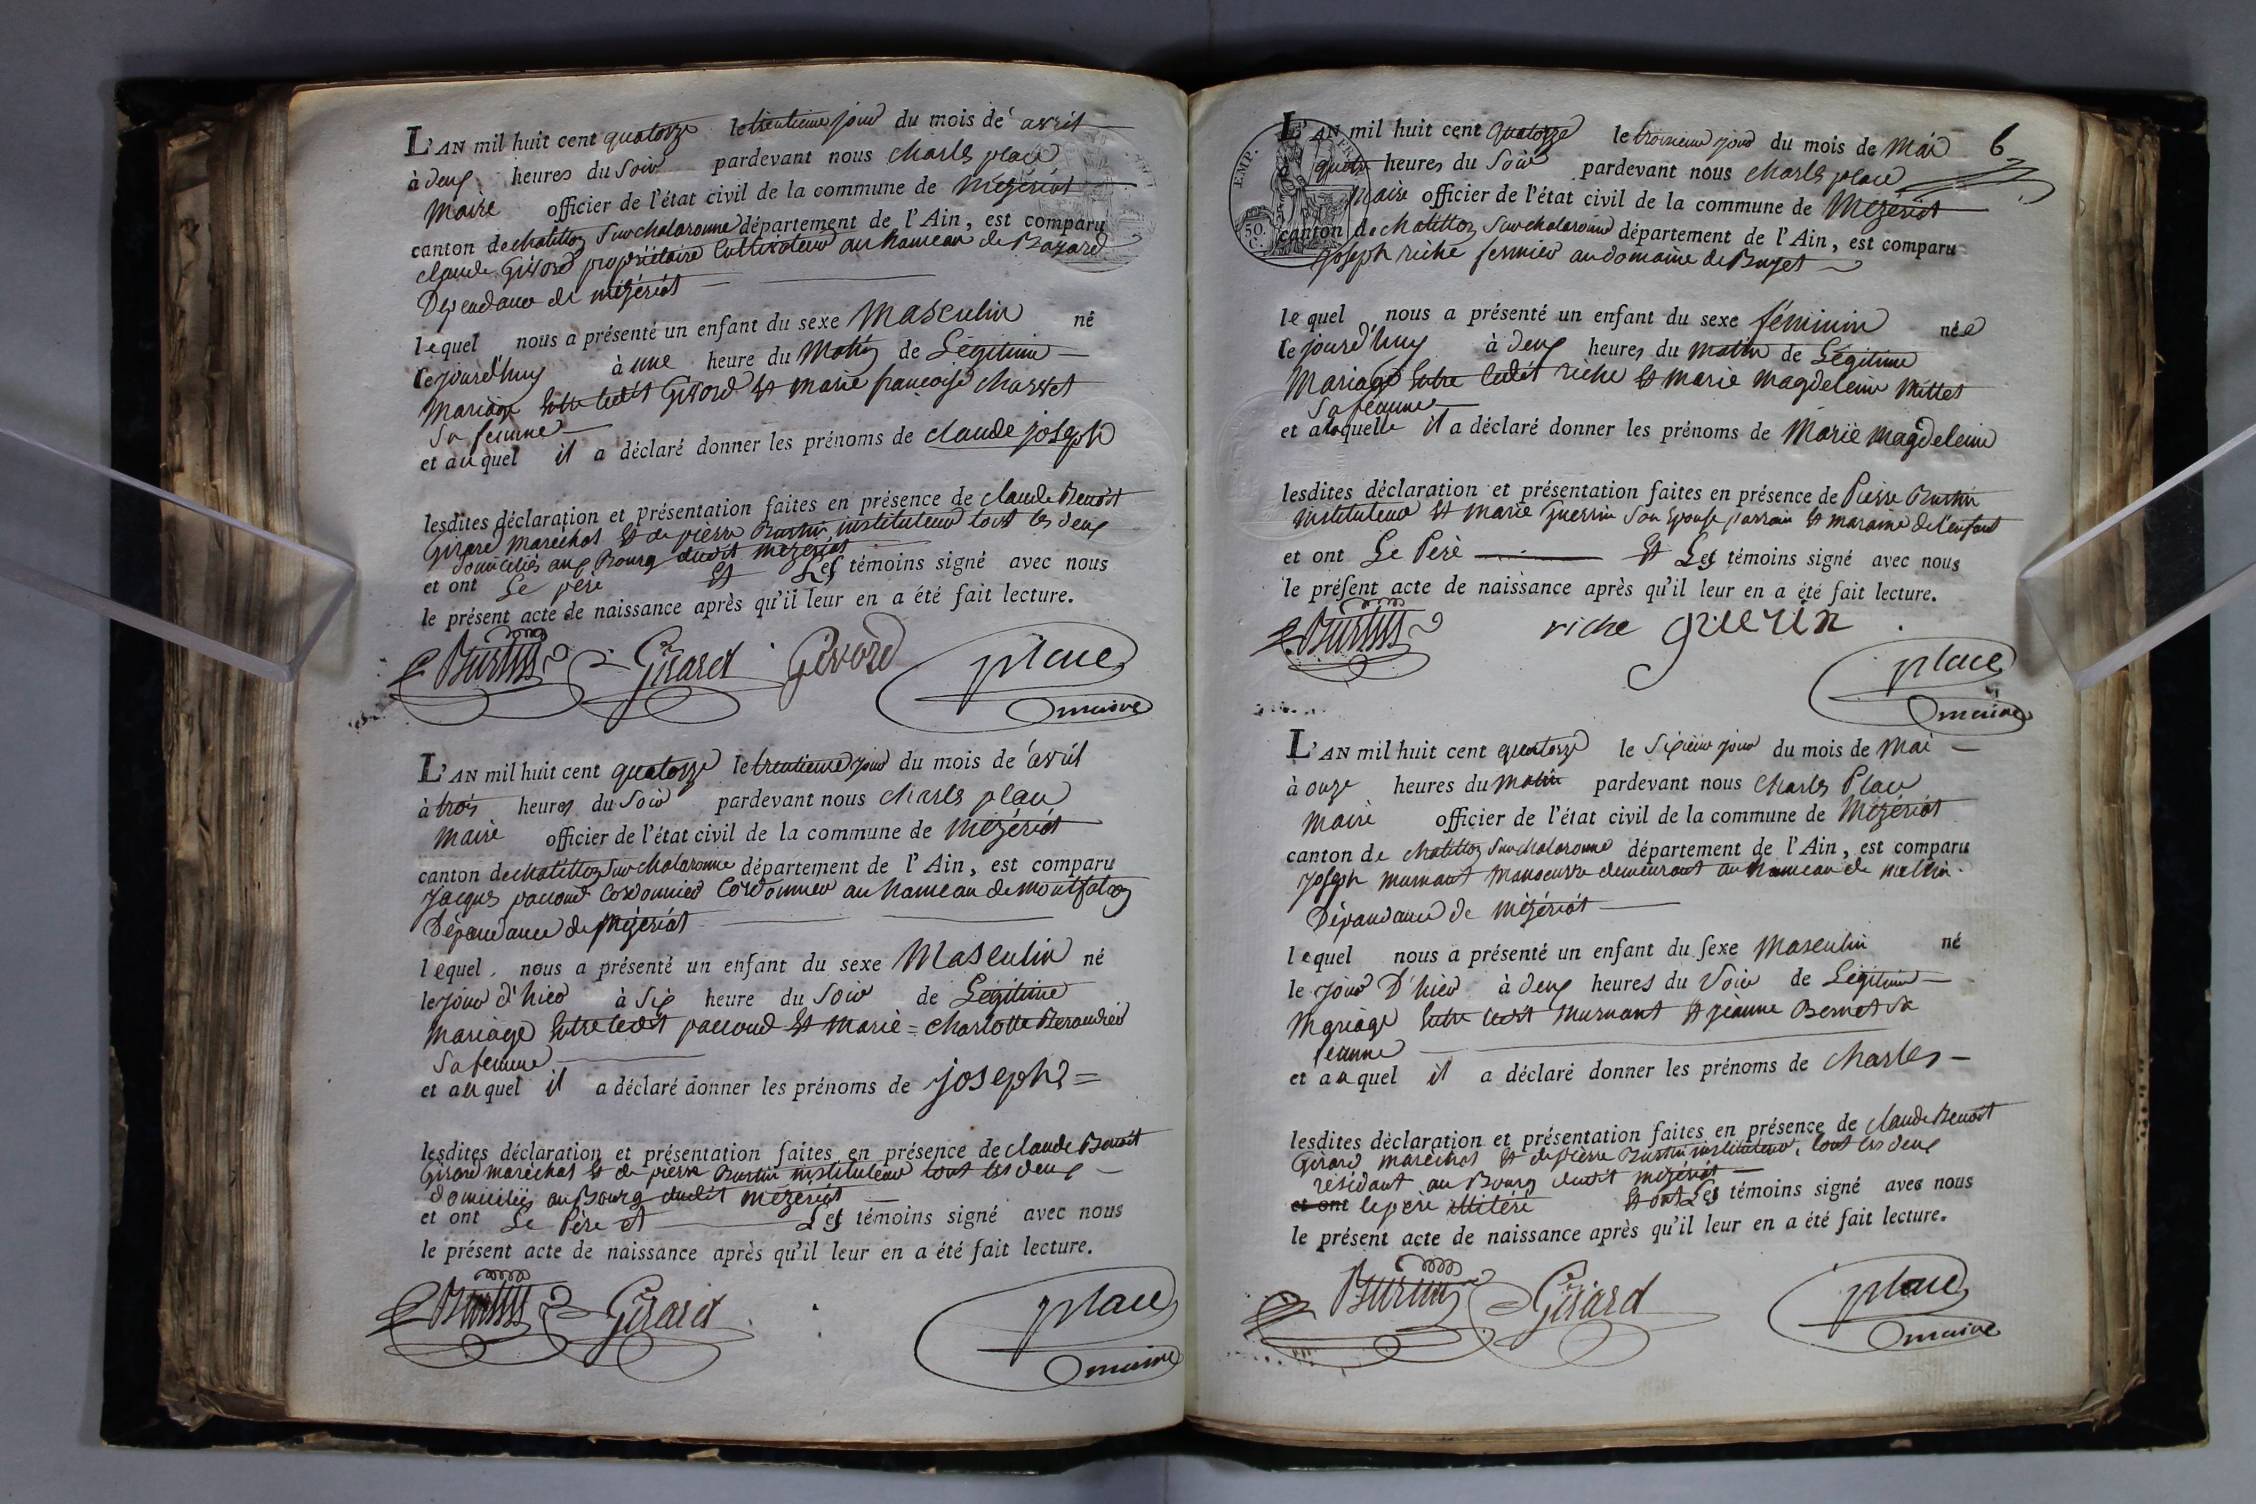 L'AN mil huit cent quatorze le trentieme jour du mois de avril
à deux heures du Soir pardevant nous charles place
maire officier de l'état civil de la commune de mézériat
canton de chatillon Sur chalaronne département de l'Ain, est comparu
claude Givord propriétaire Cultivateur au hameau de Bazard
Dependance de mézériat
lequel nous a présenté un enfant du sexe Masculin né
cejourd'huy à une heure du Matin de Légitime
mariage Entre ledit Givord Et marie françoise chasset
Sa femme
et auquel il a déclaré donner les prénoms de claude joseph
lesdites déclaration et présentation faites en présence de claude Benoit
Girard marechal Et de pierre Burtin instituteur tout les deux
domiciliés au Bourg dudit mézériat
et ont Le père Et Les témoins signé avec nous
le présent acte de naissance après qu'il leur en a été fait lecture.
Burtin Girard Givord place
maire
L'AN mil huit cent quatorze le trentieme jour du mois de avril
à trois heures du Soir pardevant nous charles place
maire officier de l'état civil de la commune de mézériat
canton de chatillon Sur chalaronne département de l'Ain, est comparu
jacques paccoud Cordonnier Cordonnier au hameau de montfalcon
Dépendance de mézériat
lequel nous a présenté un enfant du sexe Masculin né
le jour d'hier à Six heure du Soir de Légitime
mariage Entre ledit paccoud Et marie = charlotte Beraudier
Sa femme
et auquel il a déclaré donner les prénoms de joseph =
lesdites déclaration et présentation faites en présence de claude Benoit
Girard maréchal Et de pierre Burtin instituteur tout les deux
domiciliés au Bourg dudit mézériat
et ont Le Père et Les témoins signé avec nous
le présent acte de naissance après qu'il leur en a été fait lecture.
Burtin Girard place
maire
6
EMP. FR
50. C.
L'AN mil huit cent quatorze le troisieme jour du mois de Mai
quatre heures du Soir pardevant nous charles place
maire officier de l'état civil de la commune de Mézériat
canton de chatillon Sur chalaronne département de l'Ain, est comparu
joseph riche fermier au domaine de Buget
lequel nous a présenté un enfant du sexe féminin née
cejourd'huy à deux heures du matin de Légitime
Mariage Entre ledit riche Et marie magdeleine Mittet
Sa femme
et a laquelle il a déclaré donner les prénoms de Marie magdeleine
lesdites déclaration et présentation faites en présence de Pierre Burtin
instituteur Et marie guerrin Son Epouse parrain Et maraine de l'enfant
et ont Le Père Et Les témoins signé avec nous
le présent acte de naissance après qu'il leur en a été fait lecture.
Burtin riche guerin
place
maire
L'AN mil huit cent quatorze le Sixieme jour du mois de Mai
à onze heures du matin pardevant nous Charles Place
maire officier de l'état civil de la commune de Mézériat
canton de chatillon Sur chalaronne département de l'Ain, est comparu
joseph murnant manoeuvre demeurant au hameau de
Dépandance de mézériat
lequel nous a présenté un enfant du sexe masculin né
le jour D'hier à deux heures du Soir de Légitime
Mariage Entre ledit murnant Et jeanne Bernet Sa
femme
et auquel il a déclaré donner les prénoms de charles
lesdites déclaration et présentation faites en présence de claude Benoit
Girard maréchal Et de pierre Burtin instituteur, tout les deux
résidant au Bourg dudit mézériat
et ont le père illitéré Et ont Les témoins signé avec nous
le présent acte de naissance après qu'il leur en a été fait lecture.
Burtin Girard place
maire